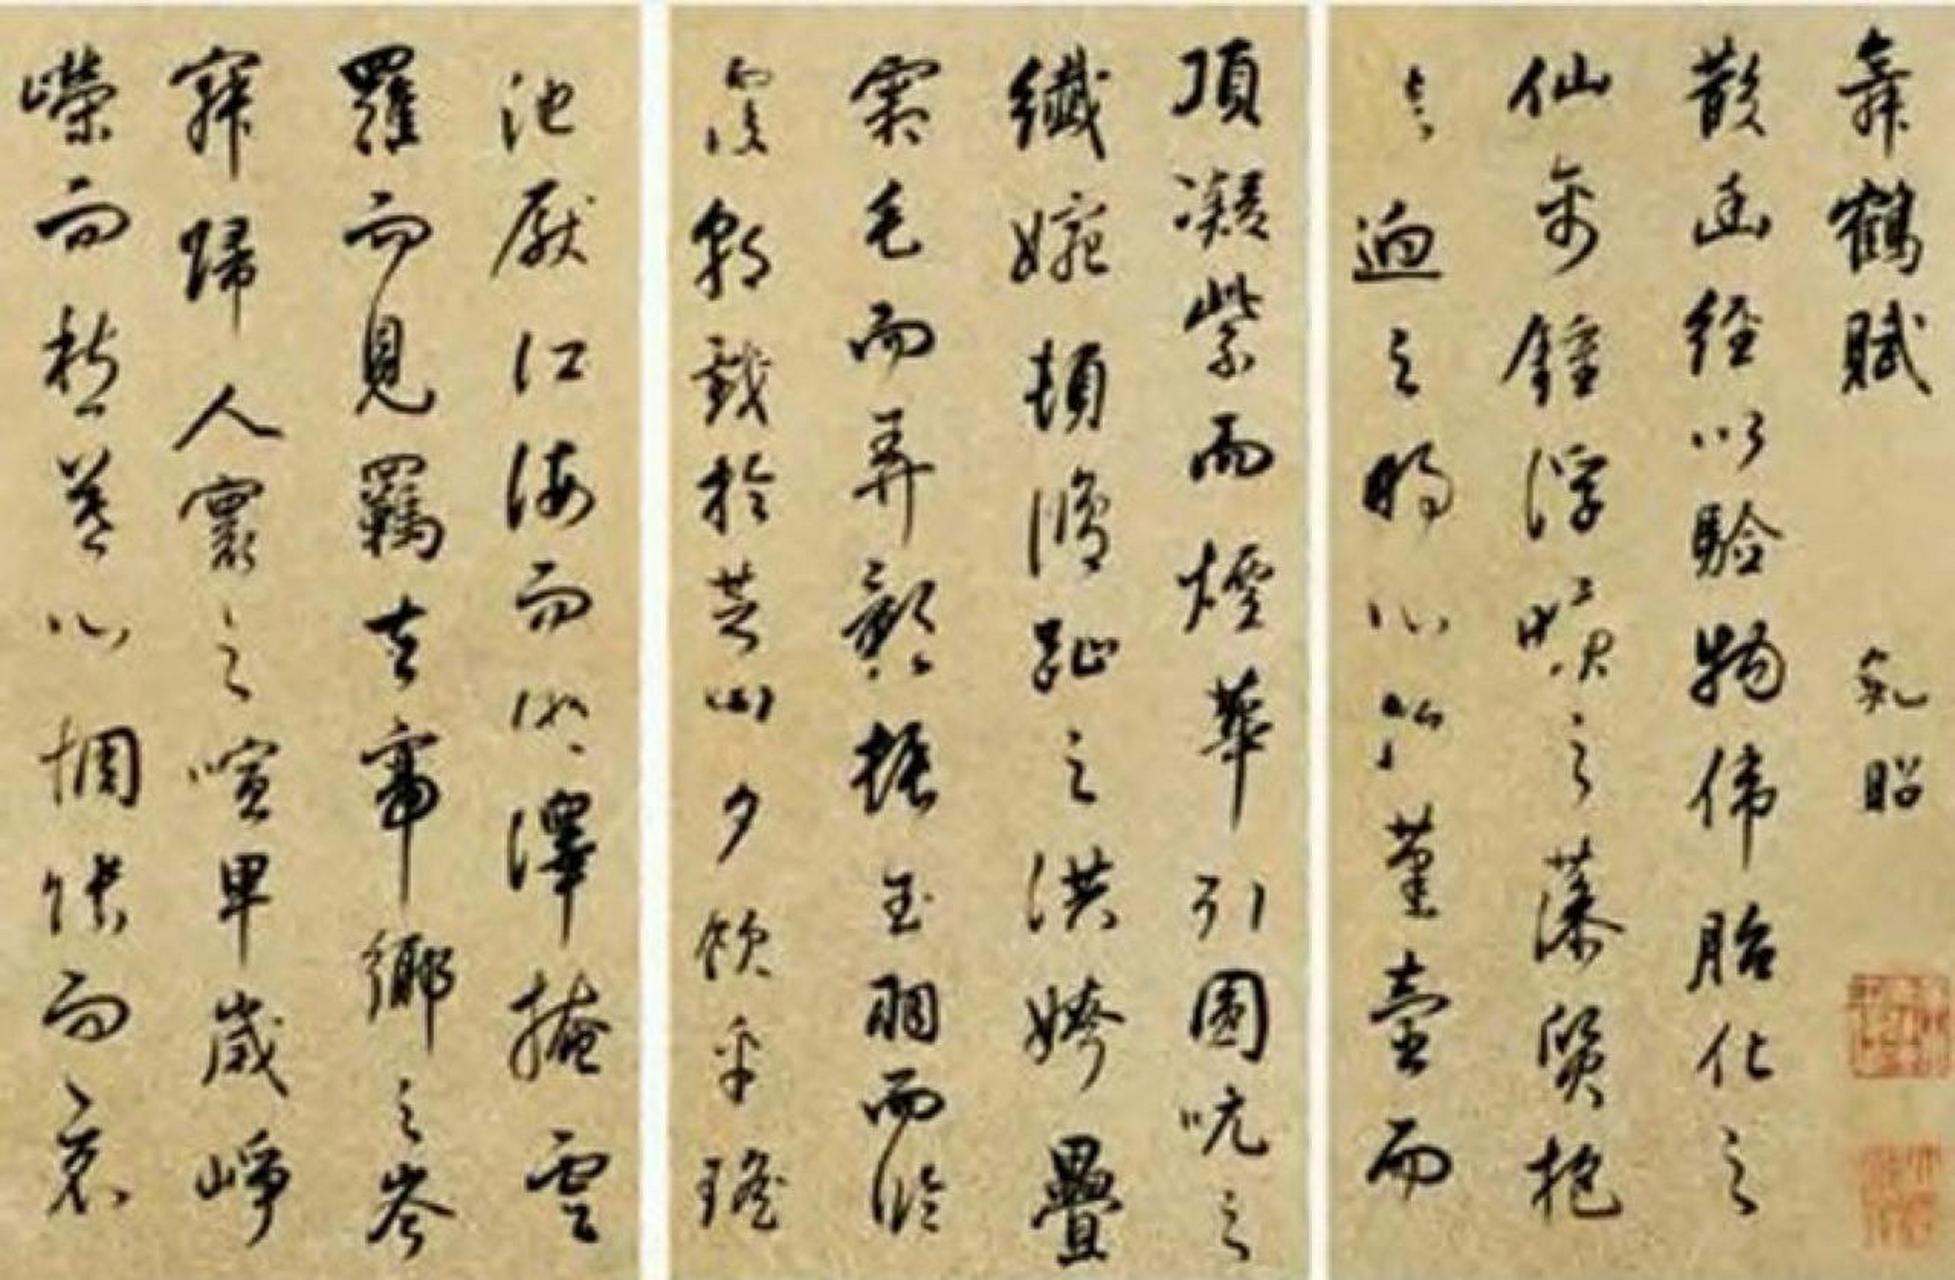 舞鶴賦 鮑昭
散幽經以驗物偉胎化之
仙禽鐘浮曠之藻質抱
清迥之明心蓬壺而
頂凝紫而煙華引圓吭之
纖婉頓脩趾之洪姱疊
霜毛而弄影振玉羽而臨
霞朝戲於芝田夕飲乎瑤
池厭江海而游澤掩雲
羅而見羈去帝鄉之岑
寂歸人寰之喧卑歲崢
嶸而愁暮心惆悵而哀